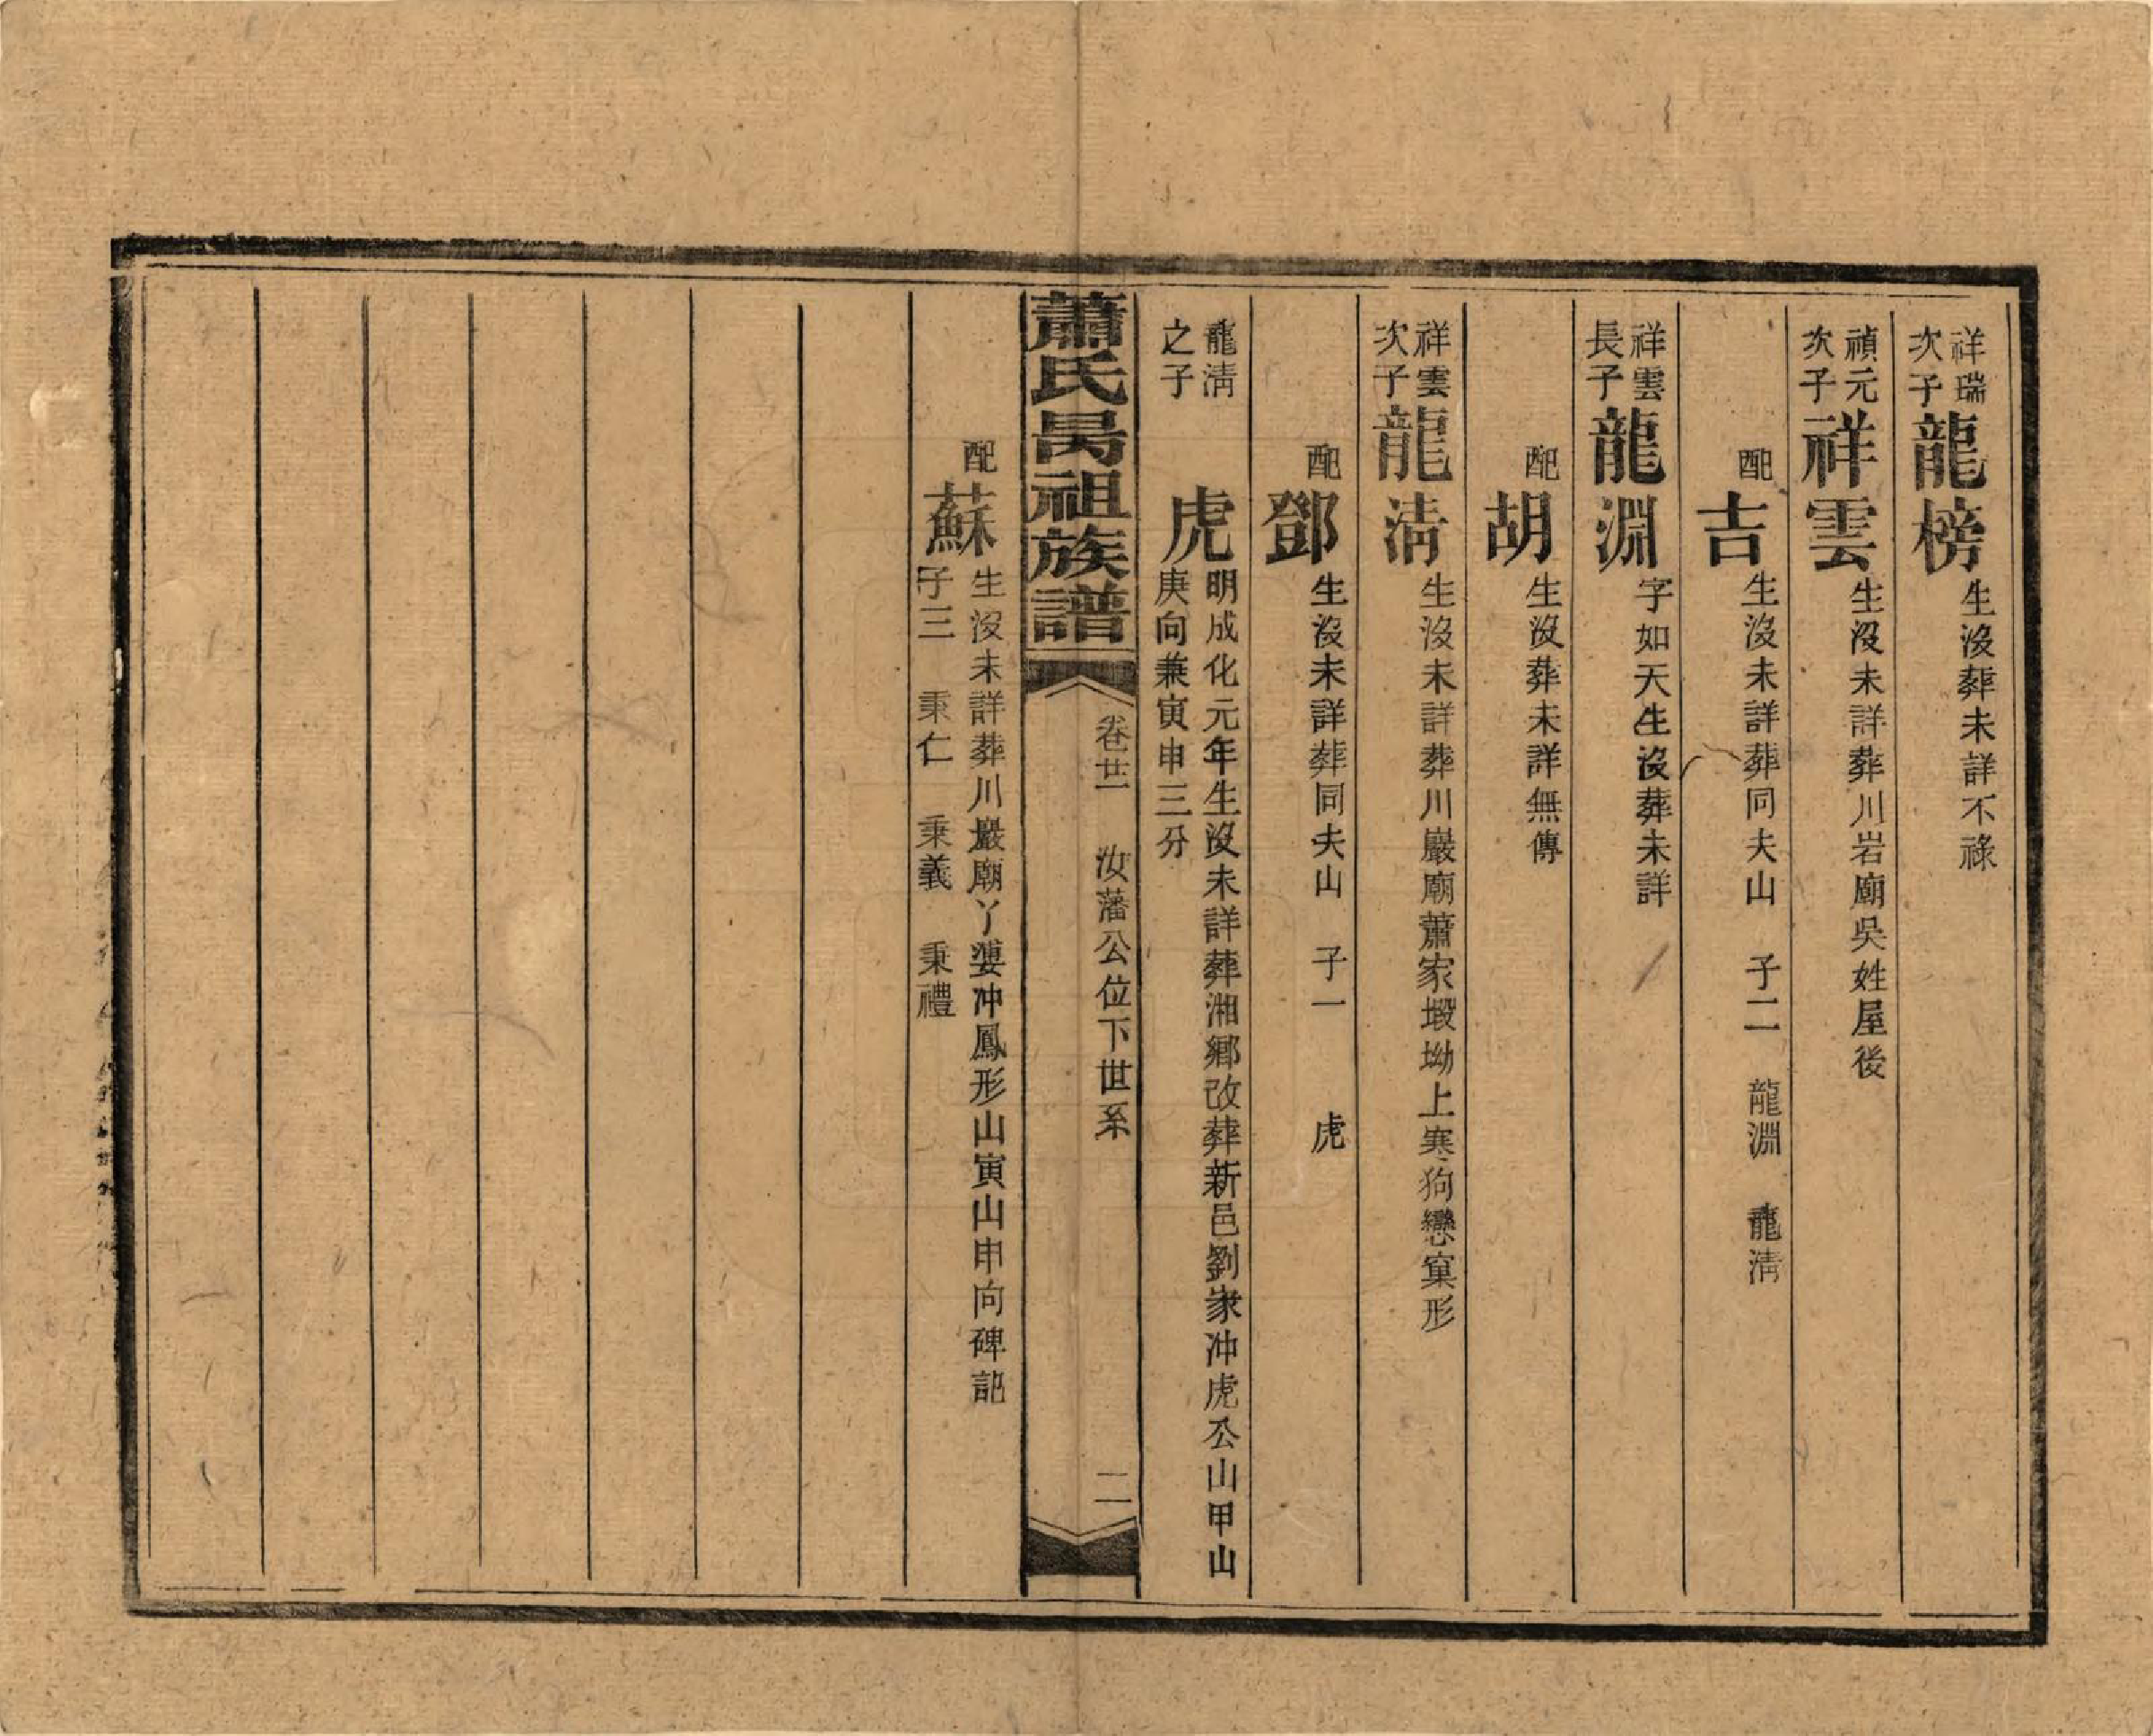 祥瑞
次子
龍榜
生沒葬未詳不祿
禎元
次子
祥雲
生沒未詳葬川岩廟吳姓屋後
配
吉
生沒未詳葬同夫山　子二　龍淵　龍清
祥雲
長子
龍淵
字如天生沒葬未詳
配
胡
生沒葬未詳無傳
祥雲
次子
龍清
生沒未詳葬川巖廟蕭家塅坳上寒狗戀窠形
配
鄧
生沒未詳葬同夫山　子一　　虎
龍清
之子
虎
明成化元年生沒未詳葬湘鄉改葬新邑劉家冲虎公山甲山
庚向兼寅申三分
蕭氏昺祖族譜
卷廿一　汝藩公位下世系
二
配
蘇
生沒未詳葬川巖廟丫婆冲鳳形山寅山申向碑記
子三　秉仁　秉義　秉禮